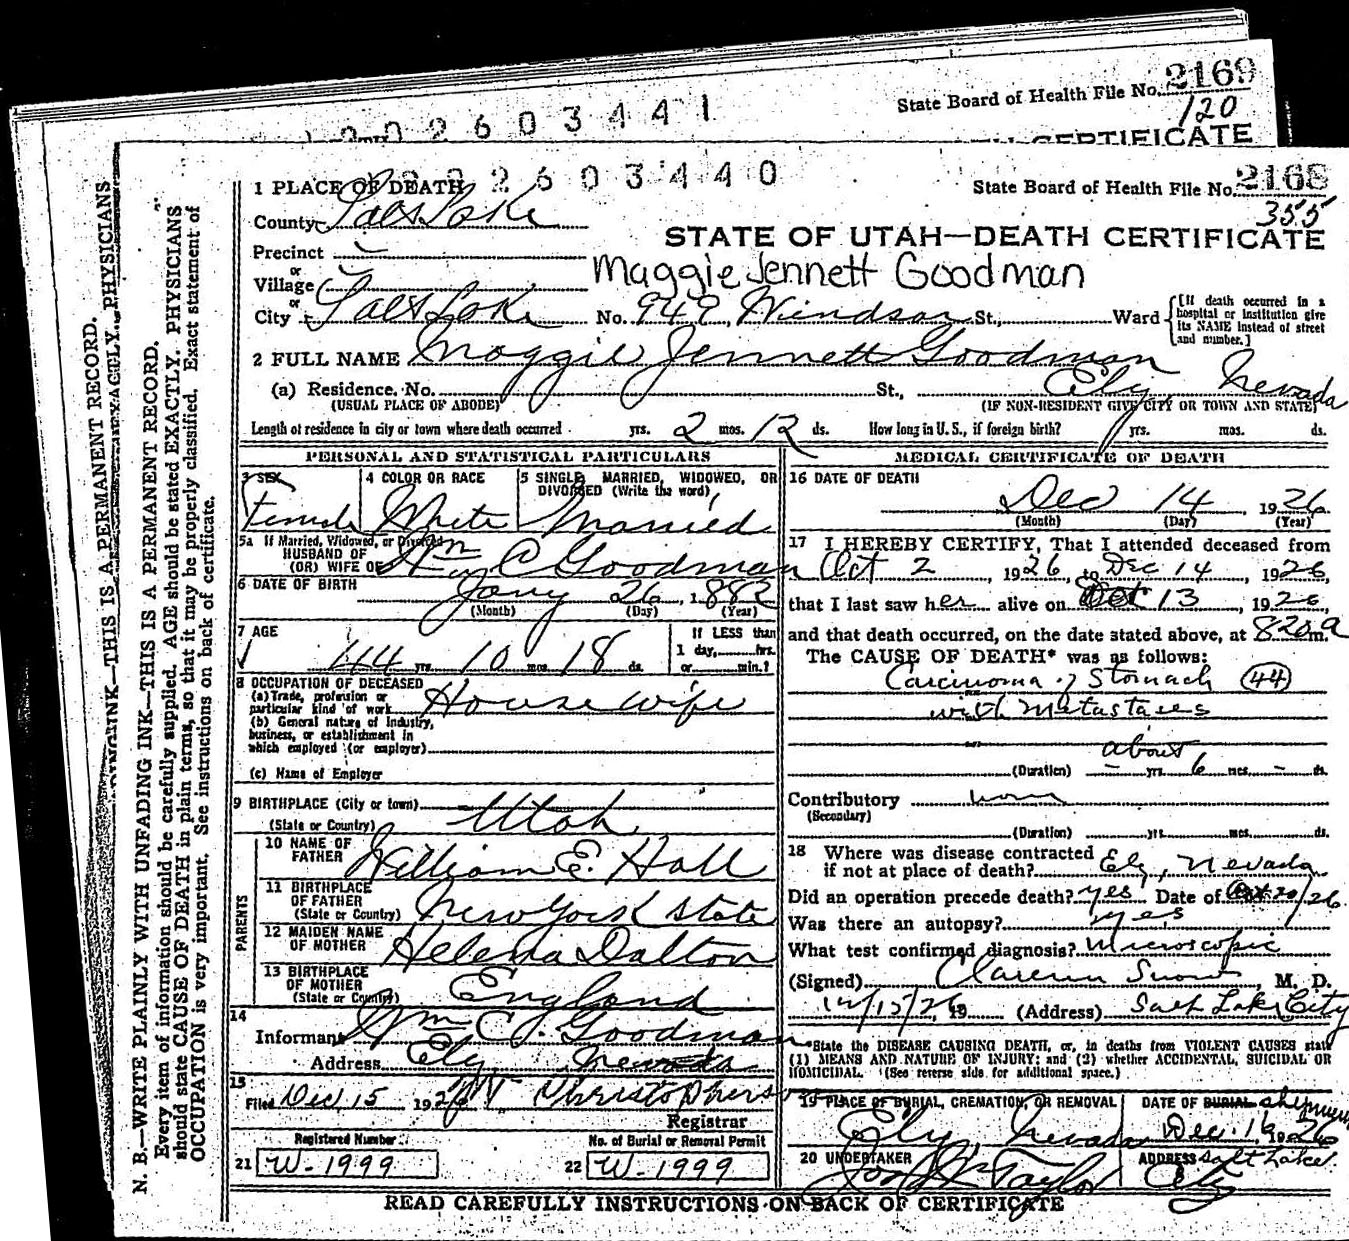 State Board of Health File No. 2169
120
2 6 0 3 4 4 1
CERTIFICATE
2 6 0 3 4 4 0
State Board of Health File No. 2168
355
STATE OF UTAH—DEATH CERTIFICATE
Maggie Jennett Goodman
1 PLACE OF DEATH
County Salt Lake
Precinct
or
Village
or
City Salt Lake No. 949 Windsor St., Ward
[If death occurred in a hospital or institution give its NAME instead of street and number.]
2 FULL NAME Maggie Jennett Goodman
(a) Residence. No. St., Ely, Nevada
(USUAL PLACE OF ABODE) (IF NON-RESIDENT GIVE CITY OR TOWN AND STATE)
Length of residence in city or town where death occurred yrs. 2 mos. 12 ds. How long in U. S., if foreign birth? yrs. mos. ds.
PERSONAL AND STATISTICAL PARTICULARS
3 SEX Female
4 COLOR OR RACE White
5 SINGLE, MARRIED, WIDOWED, OR DIVORCED (Write the word) Married
5a If Married, Widowed, or Divorced
HUSBAND OF
(OR) WIFE OF Wm C Goodman
6 DATE OF BIRTH Jany 26, 1882
(Month) (Day) (Year)
7 AGE 44 yrs. 10 mos. 18 ds.
If LESS than
1 day, hrs.
or min.?
8 OCCUPATION OF DECEASED
(a) Trade, profession or
particular kind of work Housewife
(b) General nature of Industry,
business, or establishment in
which employed (or employer)
(c) Name of Employer
9 BIRTHPLACE (City or town)
(State or Country) Utah
PARENTS
10 NAME OF FATHER William E. Hall
11 BIRTHPLACE OF FATHER
(State or Country) New York State
12 MAIDEN NAME OF MOTHER Helena Dalton
13 BIRTHPLACE OF MOTHER
(State or Country) England
14
Informant Wm C. Goodman
Address Ely Nevada
15
Filed Dec, 15 1926 Christopherson
Registrar
Registered Number
21 W-1999
No. of Burial or Removal Permit
22 W-1999
MEDICAL CERTIFICATE OF DEATH
16 DATE OF DEATH
Dec 14, 1926
(Month) (Day) (Year)
17 I HEREBY CERTIFY, That I attended deceased from
Oct 2, 1926, to Dec 14, 1926,
that I last saw her alive on Dec 13, 1926,
and that death occurred, on the date stated above, at 820 a m.
The CAUSE OF DEATH* was as follows:
Carcinoma of Stomach (44)
with Metastases
about
(Duration) — yrs. 6 mos. — ds.
Contributory none
(Secondary)
(Duration) yrs. mos. ds.
18 Where was disease contracted
if not at place of death? Ely, Nevada
Did an operation precede death? yes Date of Oct 20/26
Was there an autopsy? yes
What test confirmed diagnosis? Microscopic
(Signed) Clarence Snow, M. D.
12/15/26, 19 (Address) Salt Lake City
*State the DISEASE CAUSING DEATH, or, in deaths from VIOLENT CAUSES state
(1) MEANS AND NATURE OF INJURY; and (2) whether ACCIDENTAL, SUICIDAL OR
HOMICIDAL. (See reverse side for additional space.)
19 PLACE OF BURIAL, CREMATION, OR REMOVAL
Ely, Nevada
DATE OF BURIAL shipment
Dec. 16 1926
20 UNDERTAKER
Taylor
ADDRESS Salt Lake
City
READ CAREFULLY INSTRUCTIONS ON BACK OF CERTIFICATE
THIS IS A PERMANENT RECORD.
EXACTLY. PHYSICIANS
N. B.—WRITE PLAINLY WITH UNFADING INK—THIS IS A PERMANENT RECORD.
Every item of information should be carefully supplied. AGE should be stated EXACTLY. PHYSICIANS
should state CAUSE OF DEATH in plain terms, so that it may be properly classified. Exact statement of
OCCUPATION is very important. See instructions on back of certificate.